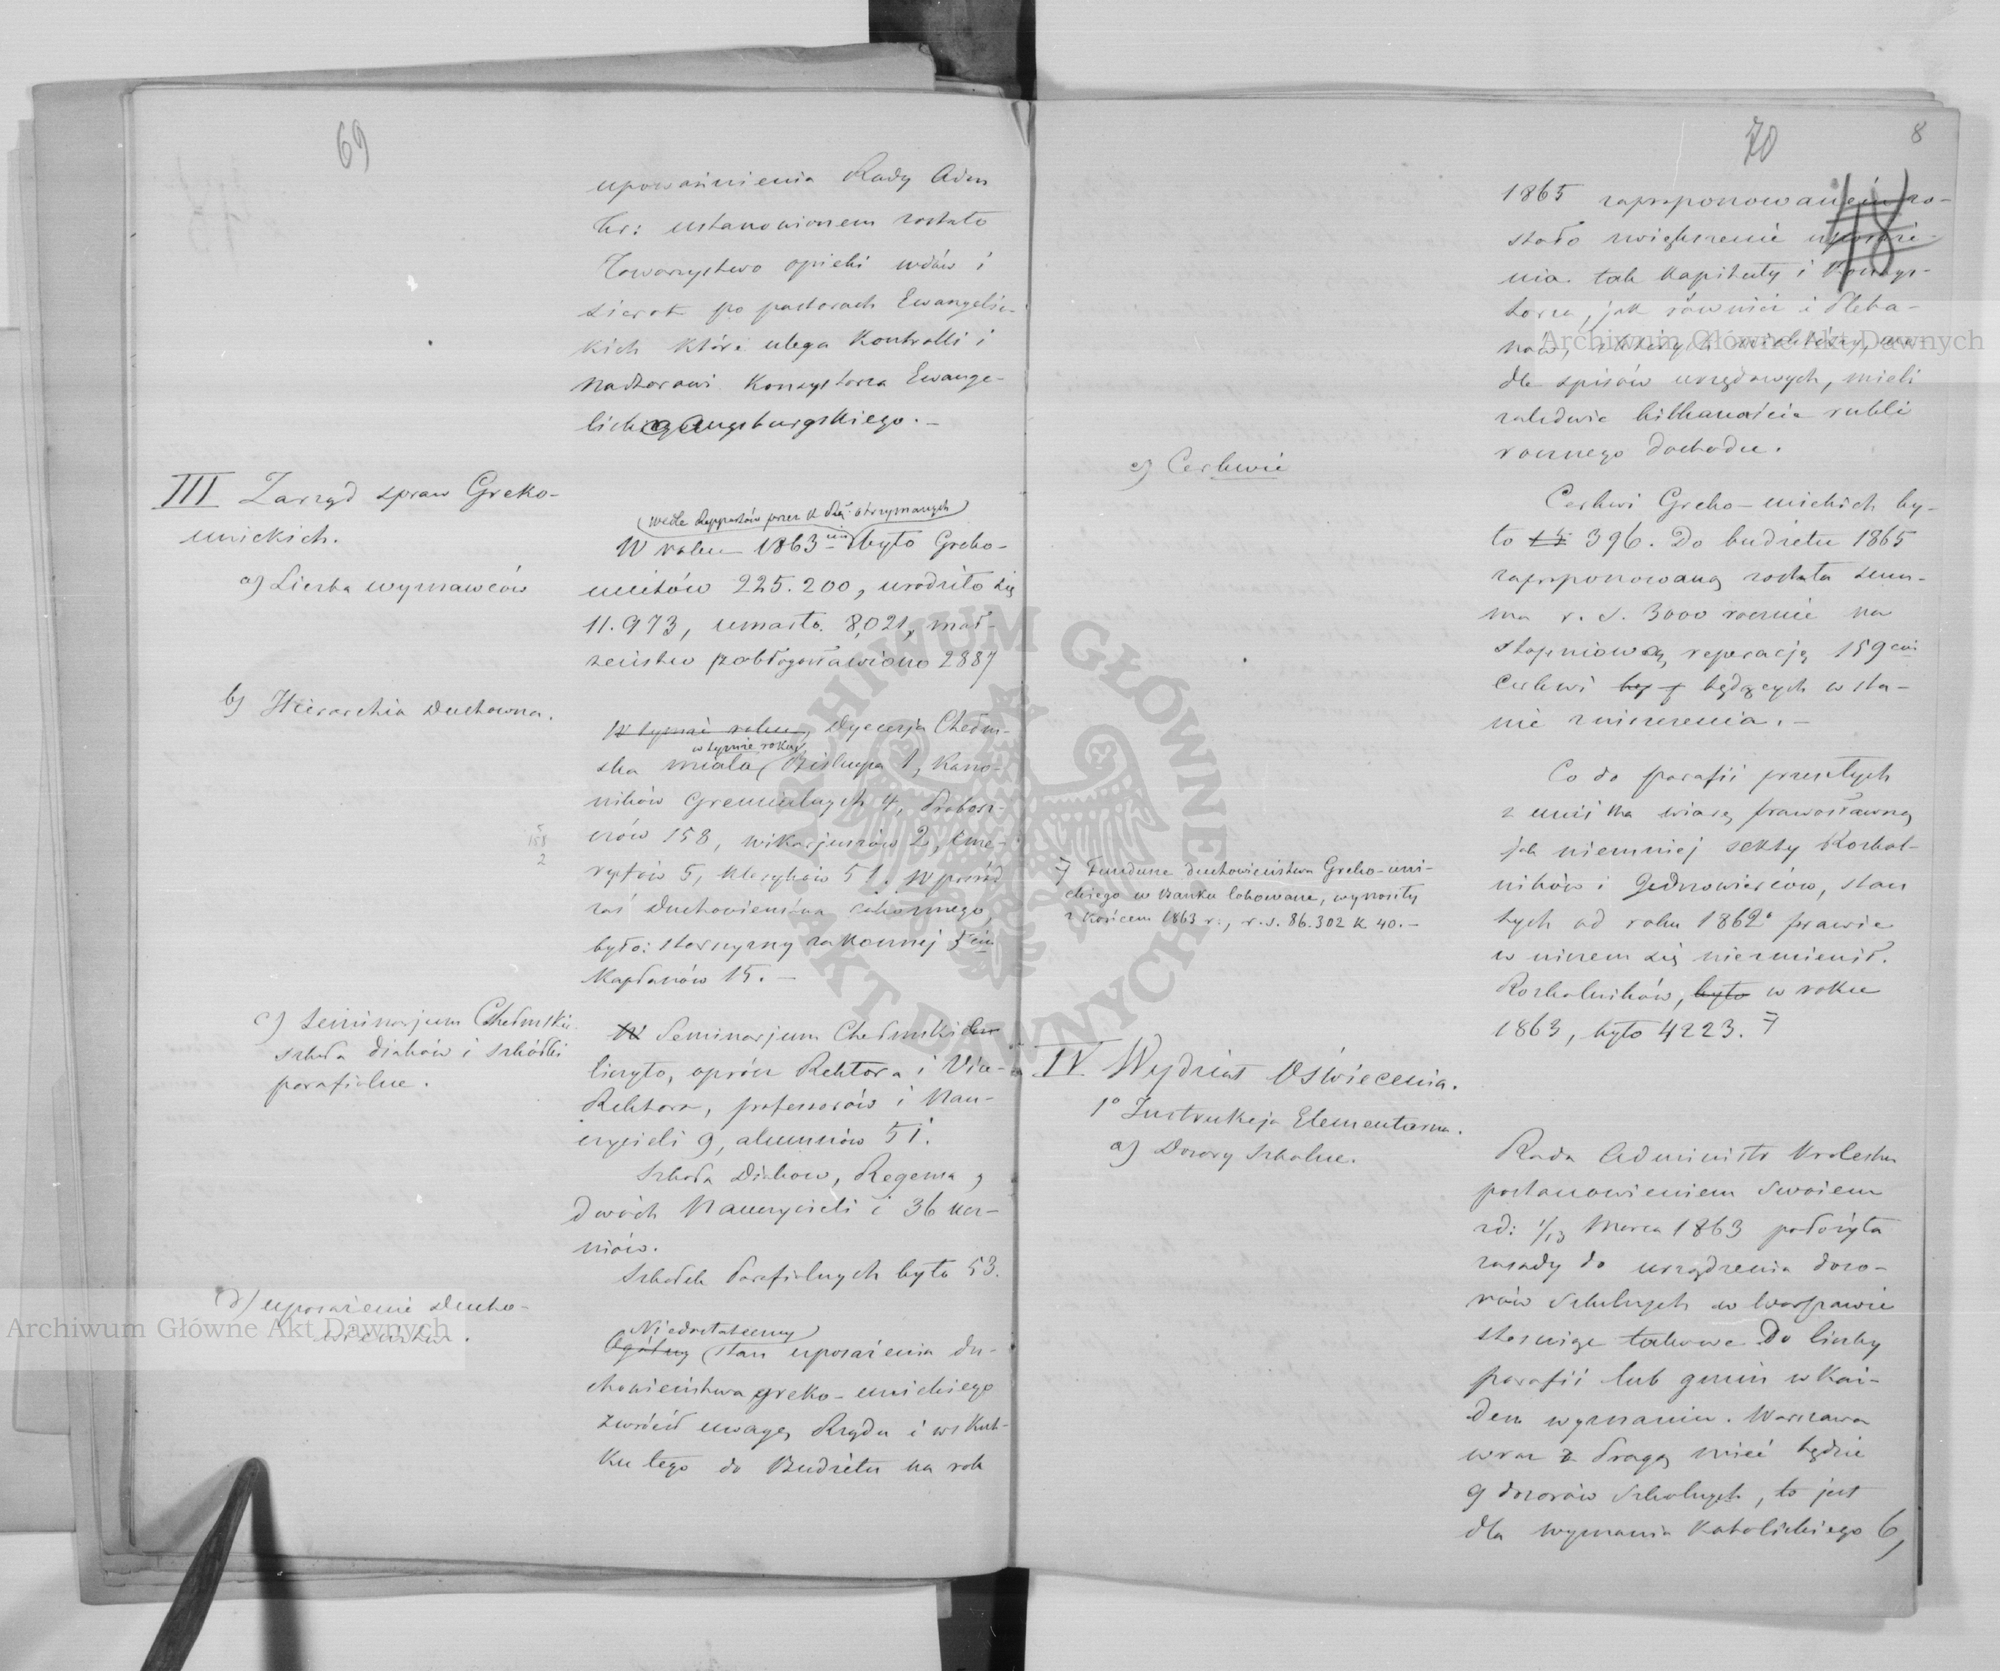 69
upoważnienia Rady Adm
Kr: ustanowionem zostało
Towarzystwo opieki wdów i
sierot po pastorach Ewangelic-
kich które ulega Kontrolli i
nadzorowi Konsystorza Ewange-
licko Augsburgskiego. –
III Zarząd spraw Greko-
unickich.
a) Liczba wyznawców
(wedle Rapportów przez K. Rzą. otrzymanych)
W roku 1863 było Greko-
unitów 225.200, urodziło się
11.973, umarło 8,021, mał-
żeństw pobłogosławiono 2887
b) Hierarchia Duchowna.
W tymże roku, Dyecezja Chełm-
w tymże roku
ska miała Biskupa 1, Kano-
ników gremialnych 4, Probosz-
czów 158, wikarjuszów 2, eme-
rytów 5, kleryków 51. W pośród
158
2
zaś duchowieństwa zakonnego,
było: starszyzny zakonnej 5
Kapłanów 15. –
c) Seminarjum Chełmskie
szkoła Diaków i szkółki
parafialne.
W Seminarjum Chełmskiem
liczyło, oprócz Rektora i Vice-
Rektora, professorów i Nau-
czycieli 9, alumnów 51.
Szkoła Diaków, Regensa,
dwóch Nauczycieli i 36 ucz-
niów.
Szkółek Parafialnych było 53.
d) uposażenie Ducho-
wieństwa.
Niedostateczny
Ogólny stan uposażenia du-
chowieństwa greko-unickiego
zwrócił uwagę Rządu i w skut-
ku tego do Budżetu na rok
70
8
78
1865 zaproponowanem zo-
stało zwiększenie uposaże-
nia tak Kapituły i Konsys-
torza, jak również i Pleba-
nów, z których niektórzy, we-
dle spisów urzędowych, mieli
zaledwie kilkanaście rubli
rocznego dochodu.
e) Cerkwie
Cerkwi Greko-unickich by-
ło 396. Do budżetu 1865
zaproponowaną została sum-
ma r. s. 3000 rocznie na
stopniową reperację 159ciu
Cerkwi będących w sta-
nie zniszczenia. –
Co do parafii przeszłych
z unii na wiarę prawosławną
jak niemniej sekty Roskol-
ników i Jednowierców, stan
tych od roku 1862 prawie
w niczem się niezmienił.
Roskolników, było w roku
1863, było 4223. 7
7 Fundusze duchowieństwa Greko-uni-
ckiego w Banku lokowane, wynosiły
z końcem 1863 r., r. s. 86.302 k 40. –
IV. Wydział Oświecenia.
1° Instrukcja Elementarna.
a) Dozory Szkolne.
Rada Administr Królestwa
postanowieniem swoiem
zd: 1/13 Marca 1863 położyła
zasady do urządzenia dozo-
rów szkolnych w Warszawie
stosując takowe Do liczby
parafii lub gmin w każ-
dem wyznaniu. Warszawa
wraz z Pragą mieć będzie
9 dozorów szkolnych, to jest
dla wyznania Katolickiego 6,
Archiwum Główne Akt Dawnych
Archiwum Główne Akt Dawnych
ARCHIWUM GŁÓWNE AKT DAWNYCH